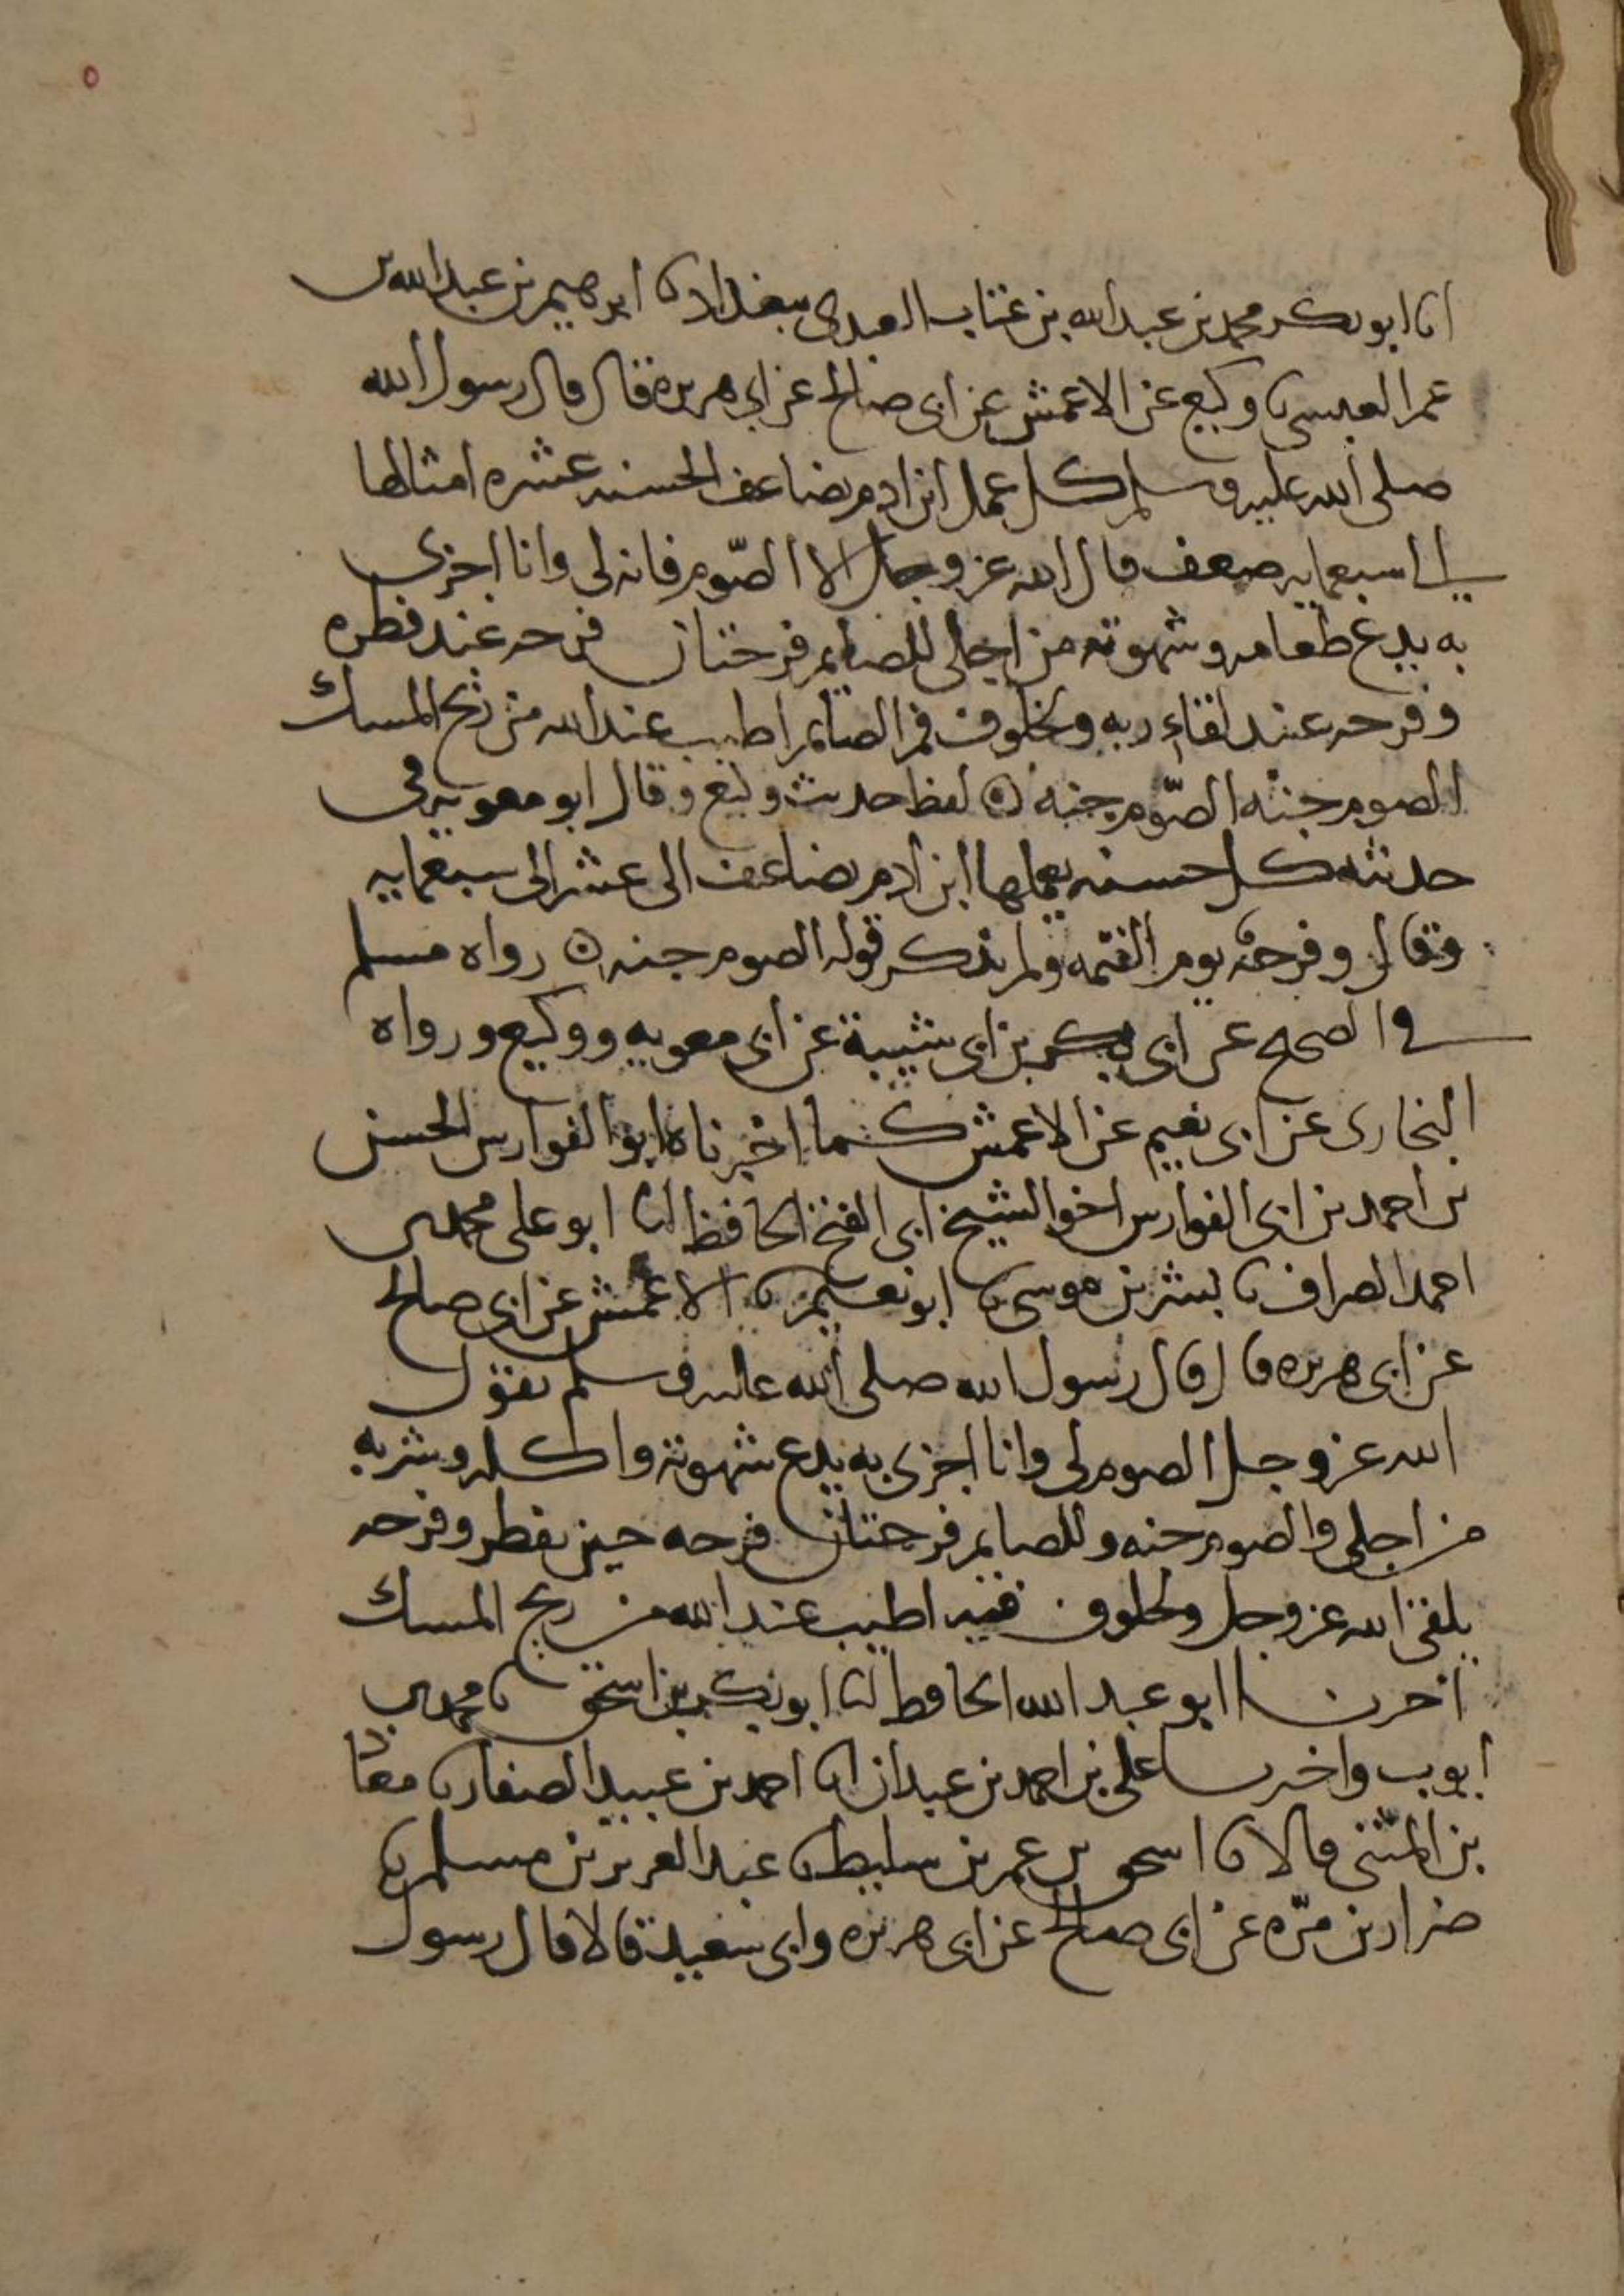 انا ابو بكر محمد بن عبد الله بن عتاب العبدى ببغداد نا ابرهيم بن عبد الله بن
عمر العبسى نا وكيع عن الاعمش عن ابى صالح عن ابى هريره قال قال رسول الله
صلى الله عليه وسلم كل عمل ابن ادم يضاعف الحسنه عشره امثالها
الى سبعمايه ضعف قال الله عز وجل الا الصّوم فانه لى وانا اجزى
به يدع طعامه وشهوته من اجلى للصايم فرحتان فرحه عند فطره
وفرحه عند لقاء ربه ولخلوف فم الصايم اطيب عند الله من ريح المسك
الصوم جنه الصّوم جنه ه لفظ حديث وكيع وقال ابو معويه فى
حديثه كل حسنه يعملها ابن ادم يضاعف الى عشر الى سبعمايه
وقال وفرحة يوم القيمه ولم يذكر قوله الصوم جنه ه رواه مسلم
فى الصحيح عن ابى بكر بن ابى شيبة عن ابى معويه ووكيع ورواه
البخارى عن ابى نعيم عن الاعمش كما اخبرناه ابو الفوارس الحسن
بن احمد بن ابى الفوارس اخو الشيخ ابى الفتح الحافظ انا ابو على محمد بن
احمد الصراف نا بشر بن موسى نا ابو نعيم نا الاعمش عن ابى صالح
عن ابى هريره قال قال رسول الله صلى الله عليه وسلم يقول
الله عز وجل الصوم لى وانا اجزى به يدع شهوته واكله وشربه
من اجلى والصوم جنه وللصايم فرحتان فرحه حين يفطر وفرحه
يلقى الله عز وجل ولخلوف فيه اطيب عند الله من ريح المسك
اخبرنا ابو عبد الله الحافظ انا ابو بكر بن اسحق نا محمد بن
ايوب واخبرنا على بن احمد بن عبدان انا احمد بن عبيد الصفار نا معاذ
بن المثنى قالا نا اسحق بن عمر بن سليط نا عبد العزيز بن مسلم نا
ضرار بن مرّه عن ابى صالح عن ابى هريره وابى سعيد قالا قال رسول